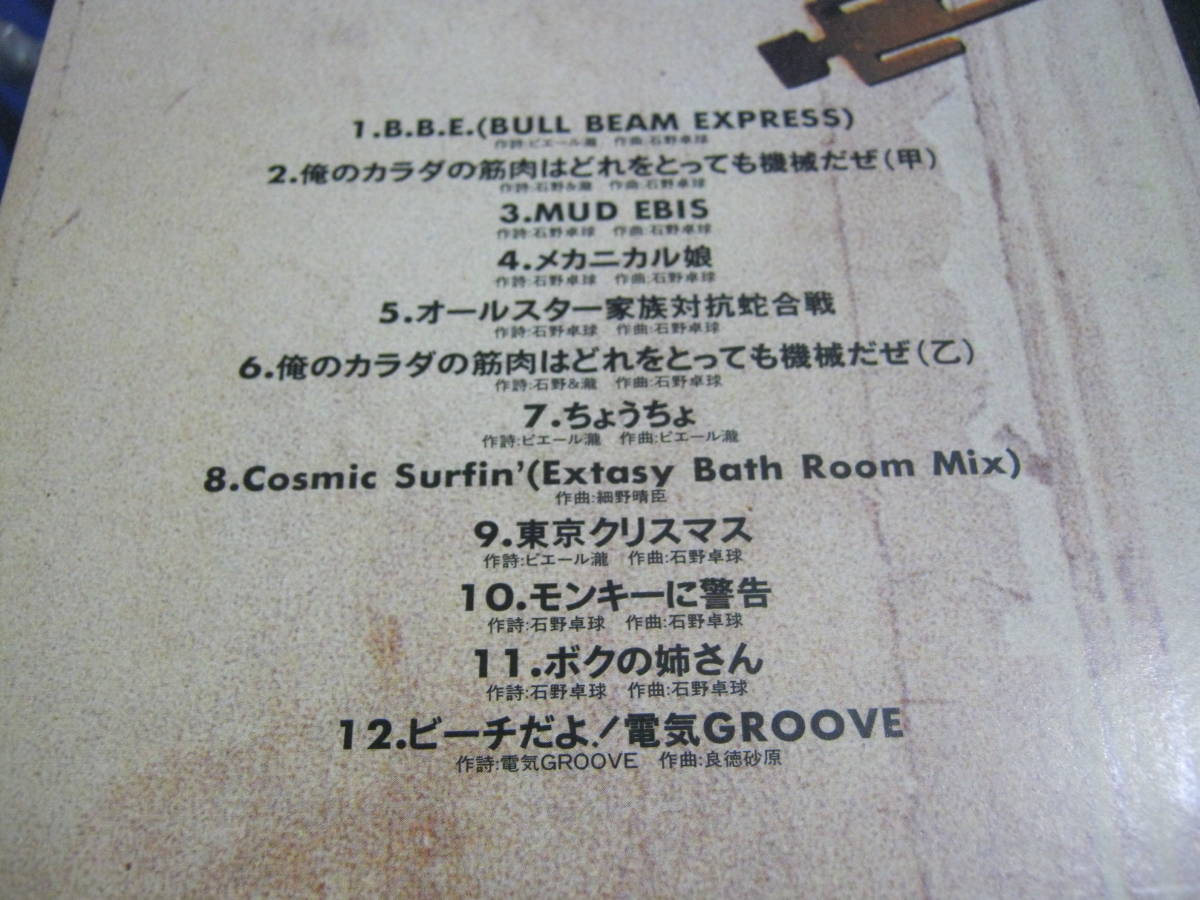 1.B.B.E.(BULL BEAM EXPRESS)
作詩:ピエール瀧　作曲:石野卓球
2.俺のカラダの筋肉はどれをとっても機械だぜ(甲)
作詩:石野&瀧　作曲:石野卓球
3.MUD EBIS
作詩:石野卓球　作曲:石野卓球
4.メカニカル娘
作詩:石野卓球　作曲:石野卓球
5.オールスター家族対抗蛇合戦
作詩:石野卓球　作曲:石野卓球
6.俺のカラダの筋肉はどれをとっても機械だぜ(乙)
作詩:石野&瀧　作曲:石野卓球
7.ちょうちょ
作詩:ピエール瀧　作曲:ピエール瀧
8.Cosmic Surfin'(Extasy Bath Room Mix)
作曲:細野晴臣
9.東京クリスマス
作詩:ピエール瀧　作曲:石野卓球
10.モンキーに警告
作詩:石野卓球　作曲:石野卓球
11.ボクの姉さん
作詩:石野卓球　作曲:石野卓球
12.ビーチだよ!電気GROOVE
作詩:電気GROOVE　作曲:良徳砂原